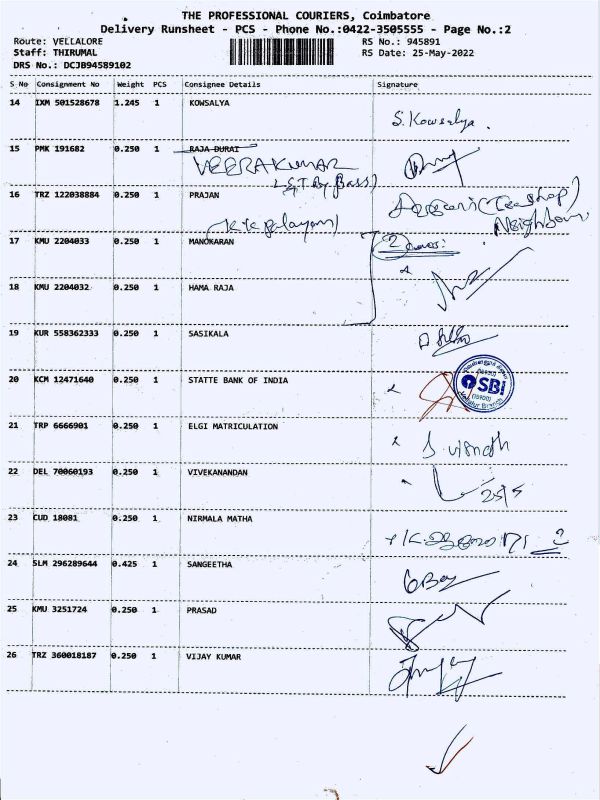 THE PROFESSIONAL COURIERS, Coimbatore
Delivery Runsheet - PCS - Phone No.:0422-3505555 - Page No.:2
Route: VELLALORE RS No.: 945891
Staff: THIRUMAL RS Date: 25-May-2022
DRS No.: DCJB94589102
S No Consignment No Weight PCS Consignee Details Signature
14 IXM 501528678 1.245 1 KOWSALYA
S. Kowsalya.
15 PMK 191682 0.250 1 RAJA DURAI
VEERAKUMAR
16 TRZ 122038884 0.250 1 PRAJAN
(Teashop)
Neighbour
17 KMU 2204033 0.250 1 MANOKARAN
2
18 KMU 2204032 0.250 1 HAMA RAJA
19 KUR 558362333 0.250 1 SASIKALA
20 KCM 12471640 0.250 1 STATTE BANK OF INDIA
SBI
21 TRP 6666901 0.250 1 ELGI MATRICULATION
22 DEL 70060193 0.250 1 VIVEKANANDAN
25/5
23 CUD 18081 0.250 1 NIRMALA MATHA
24 SLM 296289644 0.425 1 SANGEETHA
25 KMU 3251724 0.250 1 PRASAD
26 TRZ 360018187 0.250 1 VIJAY KUMAR